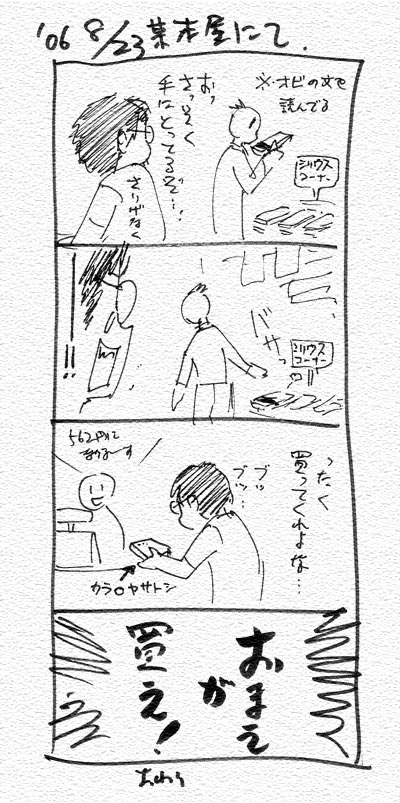 '06 8/23 某本屋にて.
※オビの文を
読んでる
おっ
さっそく
手にとってるぞ…!
さりげなく
シリウス
コーナー
!!
ドサッ
シリウス
コーナー
ったく
買ってくれよな…
ブッ
ブッ…
562円に
なりまーす
カラ○ヤサトシ
おまえ
が
買え!
おわり